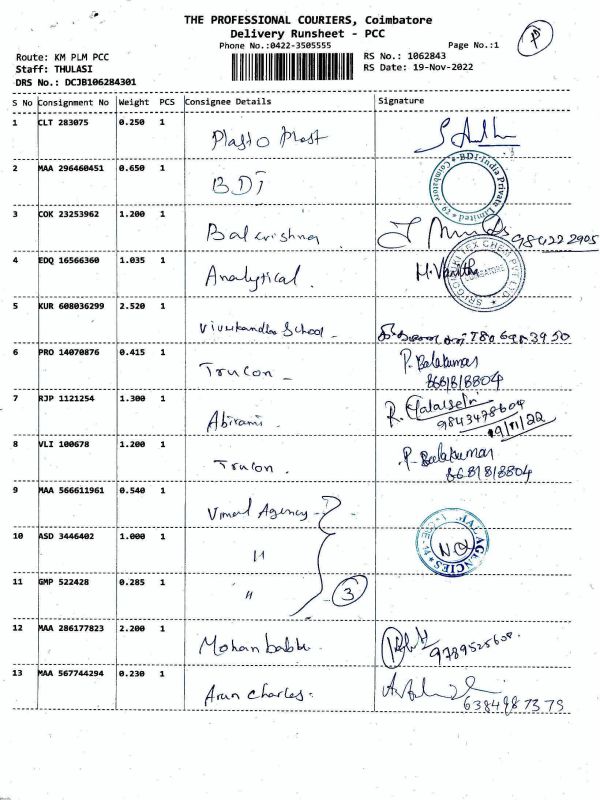 THE PROFESSIONAL COURIERS, Coimbatore
Delivery Runsheet - PCC
Phone No.:0422-3505555
Page No.:1
P
Route: KM PLM PCC
Staff: THULASI
DRS No.: DCJB106284301
RS No.: 1062843
RS Date: 19-Nov-2022
S No Consignment No Weight PCS Consignee Details Signature
1 CLT 283075 0.250 1 Plasto Plast
2 MAA 296460451 0.650 1 BDI BDI-India Private Limited Coimbatore
3 COK 23253962 1.200 1 Balkrishna 984222905
4 EDQ 16566360 1.035 1 Analytical. CHEM PVT LTD COIMBATORE
5 KUR 608036299 2.520 1 Vivekandha School
6 PRO 14070876 0.415 1 Trucon - P. Balakumar
8681818804
7 RJP 1121254 1.300 1 Abirami
9843478604
19/11/22
8 VLI 100678 1.200 1 Trucon . P. Balakumar
8681818804
9 MAA 566611961 0.540 1 Vimal Agency
10 ASD 3446402 1.000 1 " AGENCIES
11 GMP 522428 0.285 1 " 3
12 MAA 286177823 2.200 1 Mohan babu. 9789525608.
13 MAA 567744294 0.230 1 Arun Charles.